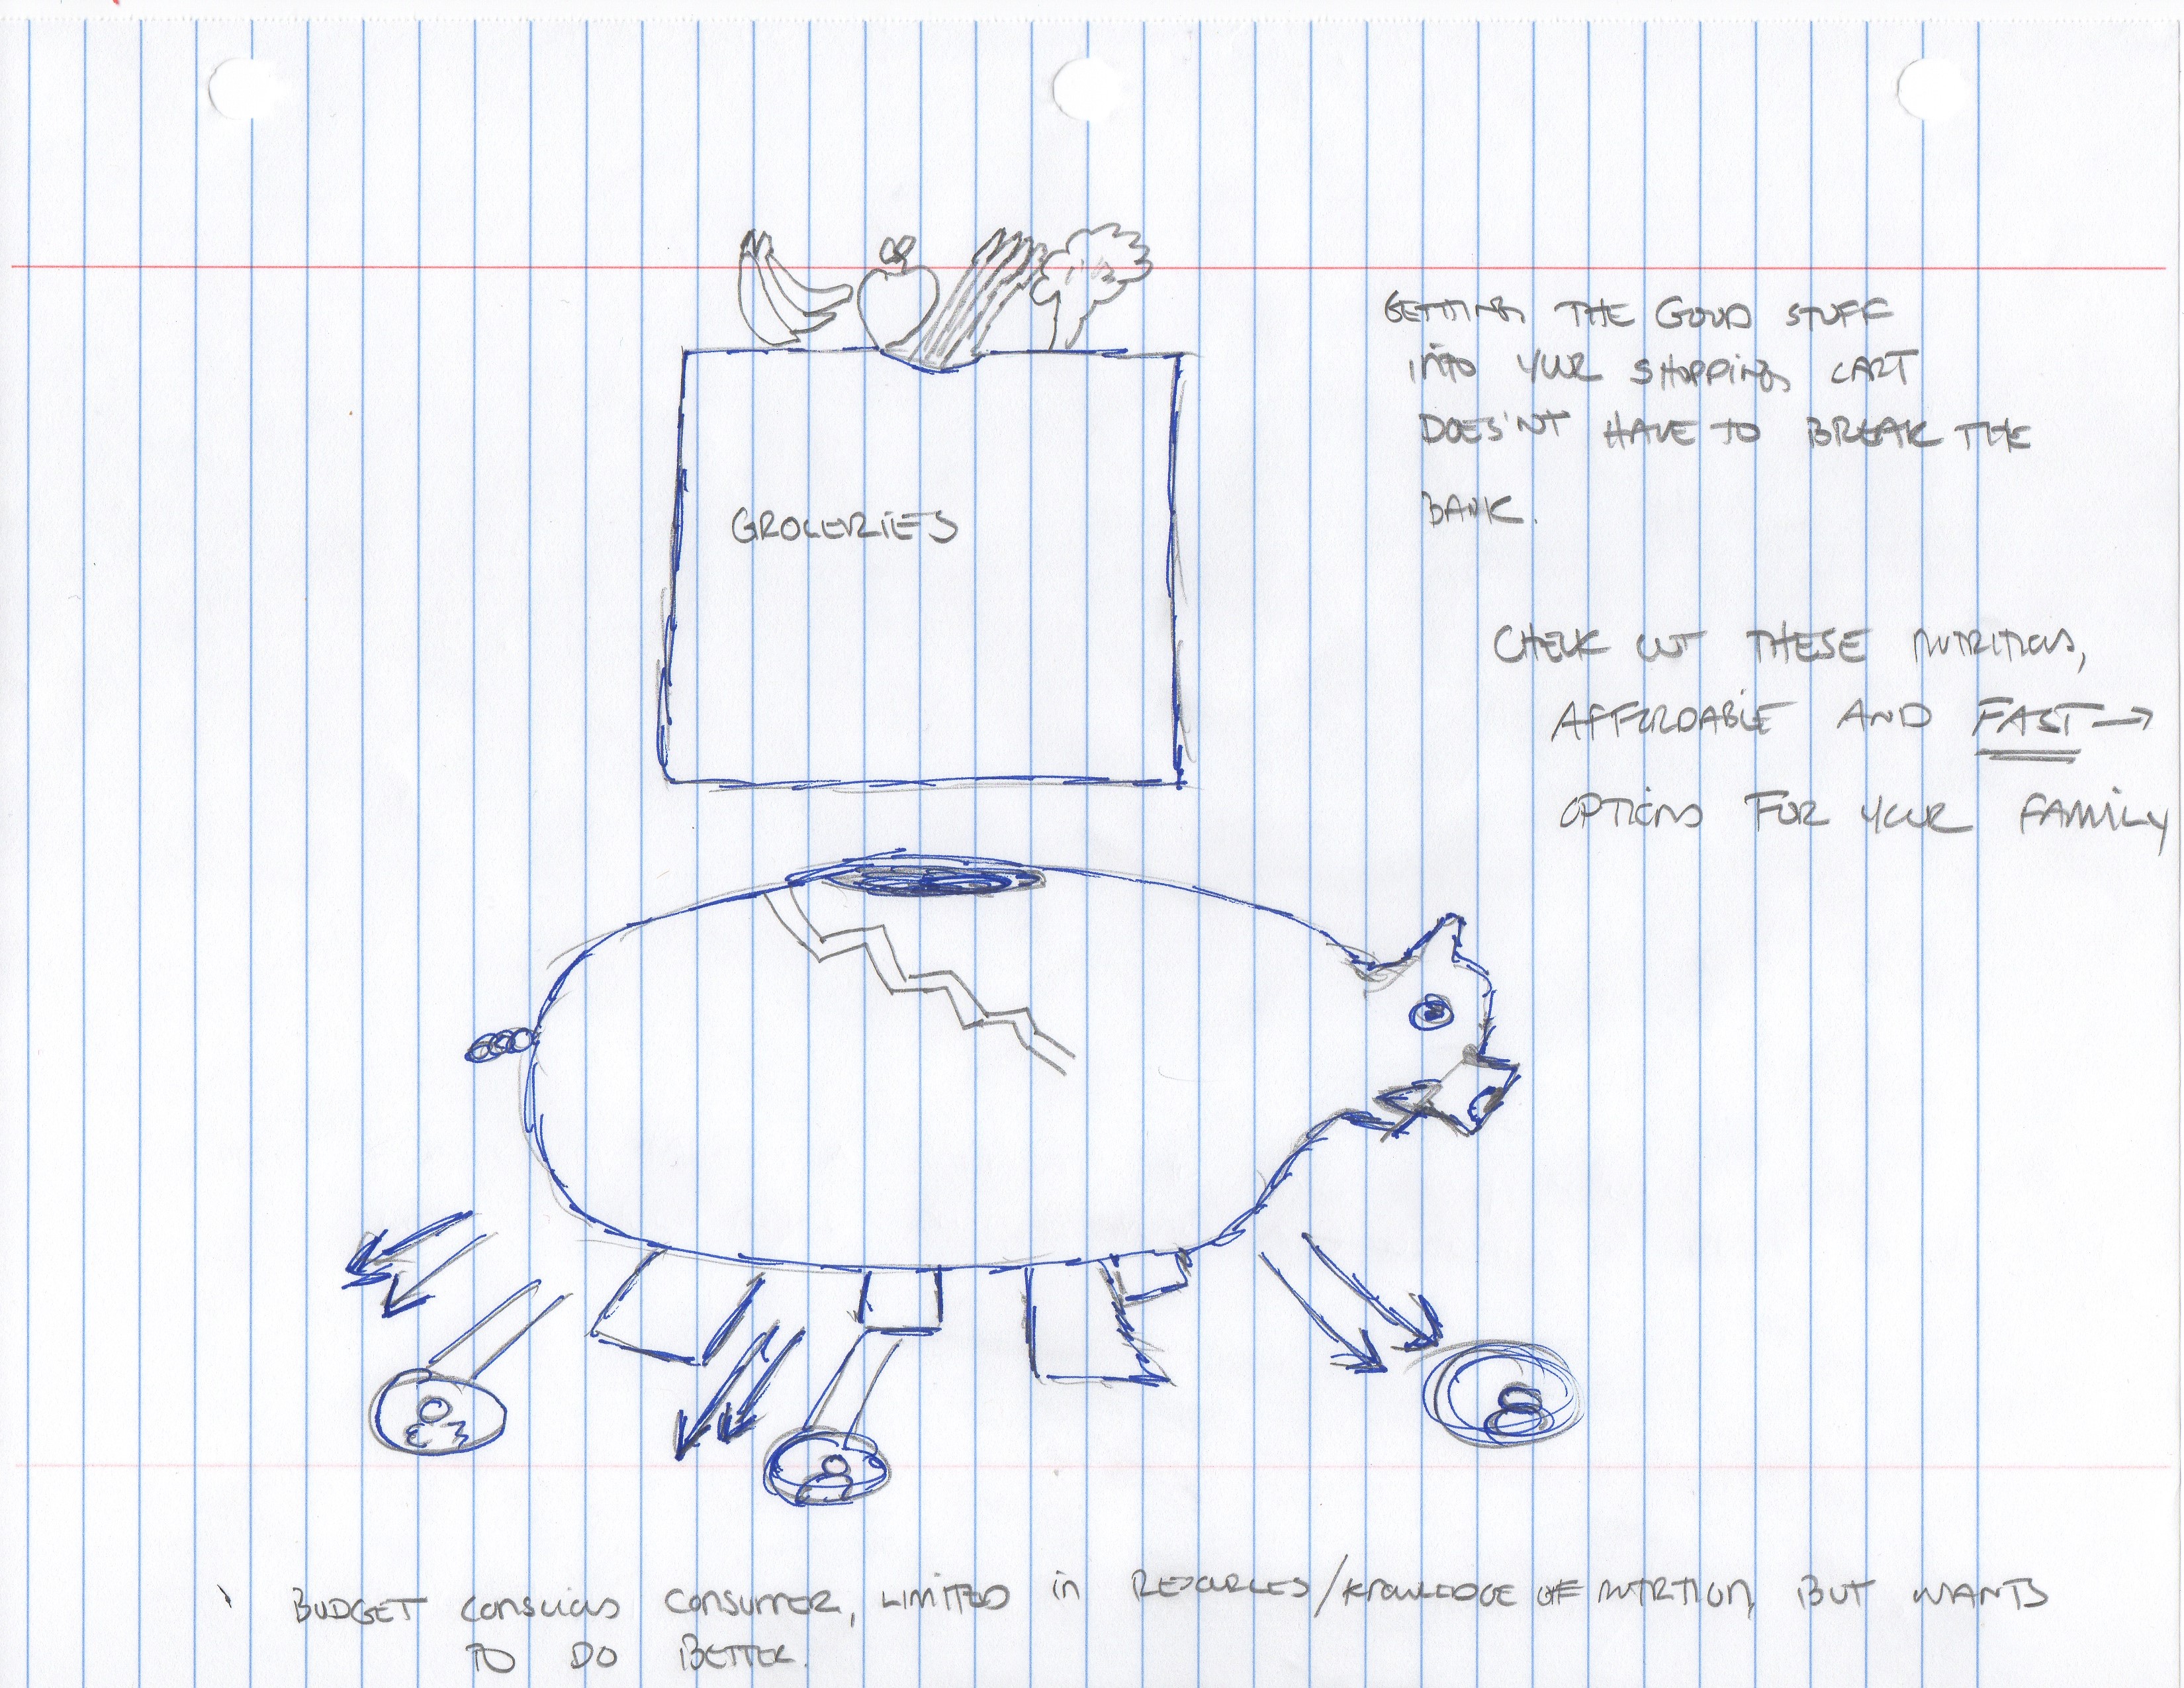 GETTING THE GOOD STUFF
INTO YOUR SHOPPING CART
DOES'NT HAVE TO BREAK THE
BANK.
GROCERIES
CHECK OUT THESE NUTRITIOUS,
AFFORDABLE AND FAST →
OPTIONS FOR YOUR FAMILY
BUDGET CONSCIOUS CONSUMER, LIMITED in RESOURCES/KNOWLEDGE OF NUTRITION, BUT WANTS
TO DO BETTER.